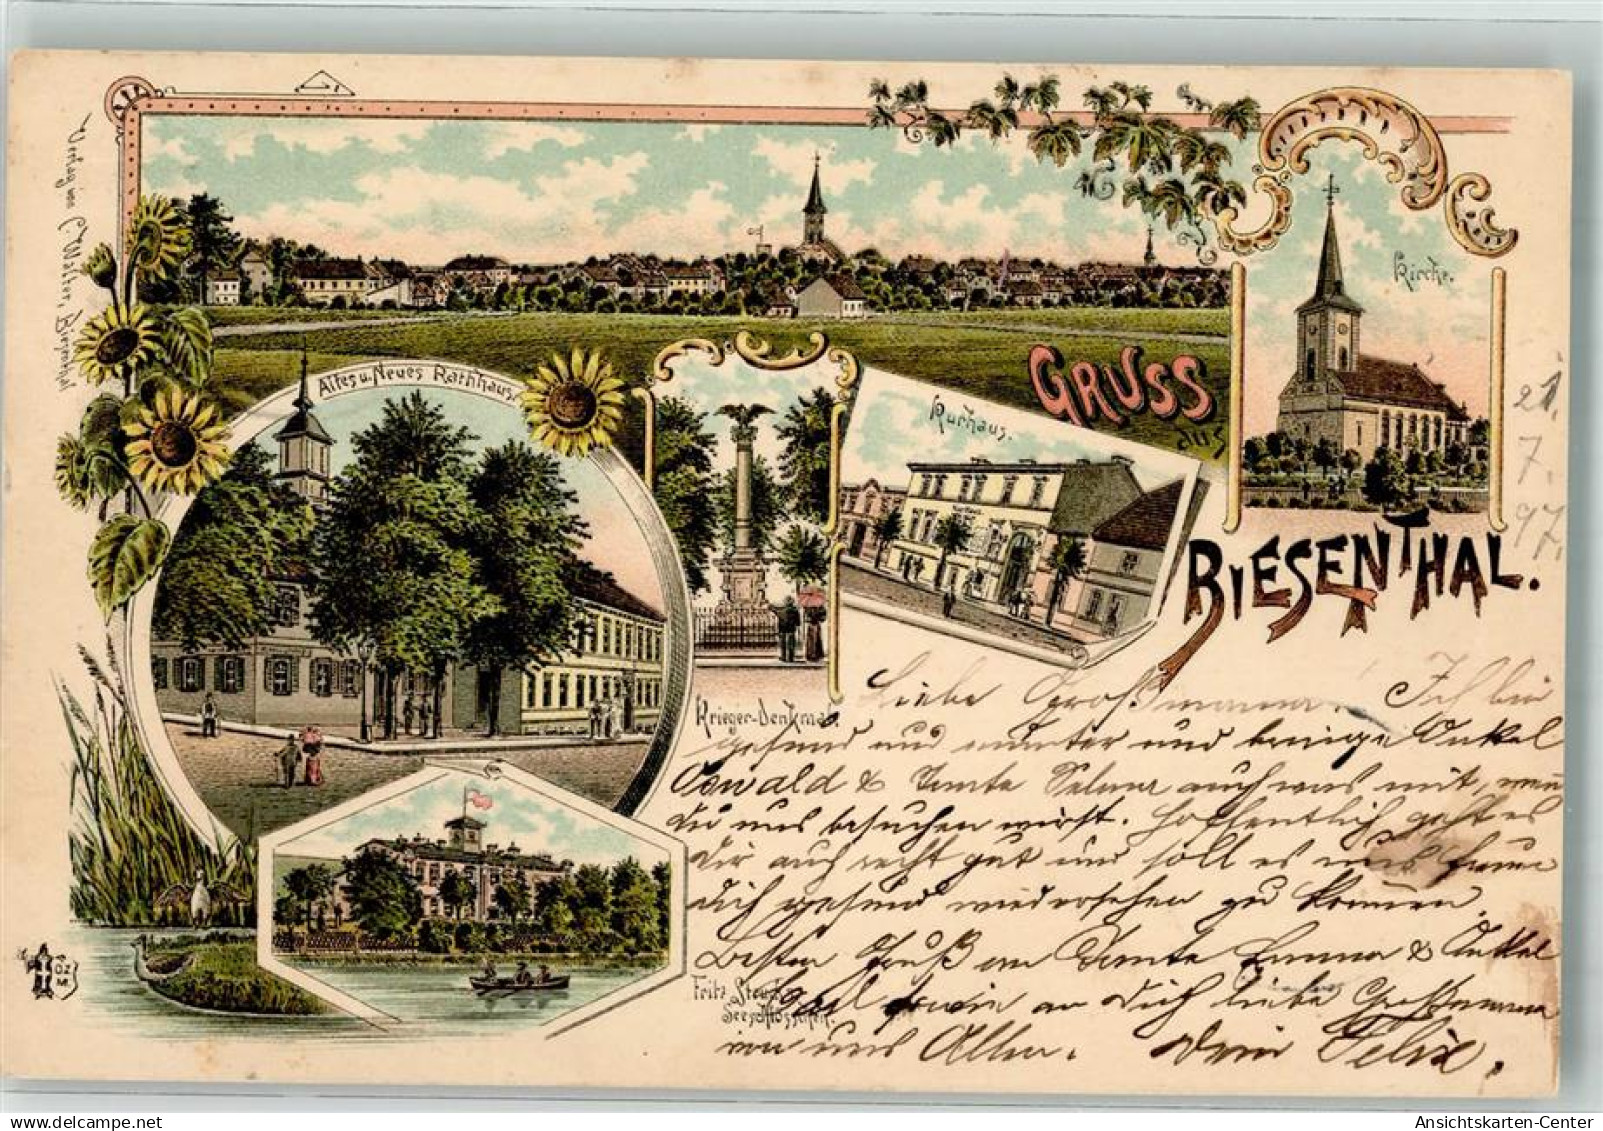 Verlag von C. Walter, Biesenthal
Kirche.
GRUSS
aus
Altes u. Neues Rathhaus.
Kurhaus.
BIESENTHAL.
21.
7.
97.
Krieger-Denkmal.
Liebe Grossmama. Ich bin
gesund und munter und bringe Onkel
Oswald & Tante Selma auch was mit, wenn
du uns besuchen wirst. Hoffentlich geht es
Dir auch recht gut und soll es uns freun
dich gesund wiedersehen zu können
Besten Gruß an Tante Emma & Onkel
sowie an Dich liebe Großmama
von uns Allen. Dein Felix.
Fritz
Seeschlösschen.